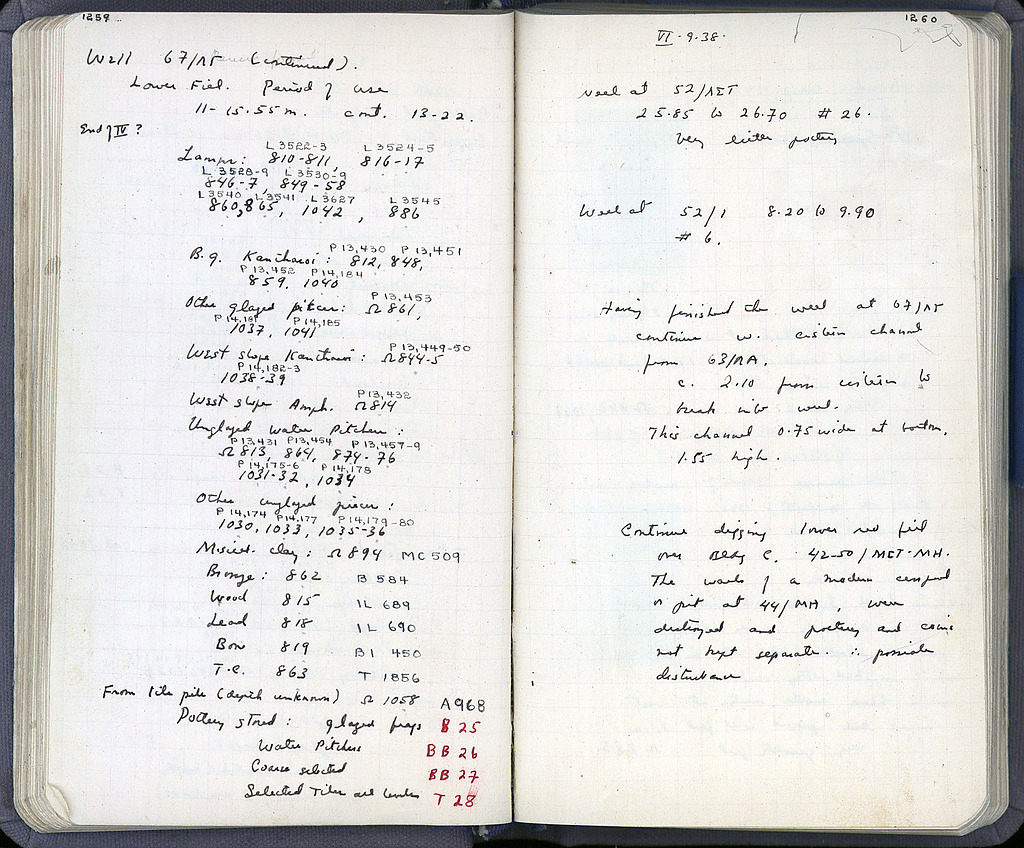 1259
Well 67/ΛΓ (continued).
Lower Fill. Period of use
11-15.55 m. cont. 13-22.
End of IV?
L 3522-3 L 3524-5
Lamps: 810-811, 816-17
L 3528-9 L 3530-9
846-7, 849-58
L 3540 L 3541 L 3627 L 3545
860, 865, 1042, 886
P 13,430 P 13,451
B.g. Kantharoi: 812, 848,
P 13,452 P 14,184
859, 1040
P 13,453
Other glazed pieces: Ω 861,
P 14,181 P 14,185
1037, 1041
P 13,449-50
West slope Kantharoi: Ω 844-5
P 14,182-3
1038-39
P 13,432
West slope Amph. Ω 814
Unglazed Water Pitchers:
P 13,431 P 13,454 P 13,457-9
Ω 813, 864, 874-76
P 14,175-6 P 14,178
1031-32, 1034
Other unglazed pieces:
P 14,174 P 14,177 P 14,179-80
1030, 1033, 1035-36
Miscel. clay: Ω 894 MC 509
Bronze: 862 B 584
Wood 815 IL 689
Lead 818 IL 690
Bone 819 BI 450
T.C. 863 T 1856
From tile pile (depth unknown) Ω 1058 A 968
Pottery stored: glazed frags B 25
Water Pitchers BB 26
Coarse selected BB 27
Selected Tiles and T 28
1260
VI-9-38.
Well at 52/ΛΣΤ
25.85 to 26.70 # 26.
Very little pottery
Well at 52/Ι 8.20 to 9.90
# 6.
Having finished the well at 67/ΛΓ
continue w. cistern channel
from 63/ΛΑ.
c. 2.10 from cistern to
break into well.
This channel 0.75 wide at bottom,
1.55 high.
Continue digging lower red fill
over Bldg C. 42-50/ΜΣΤ-ΜΗ.
The walls of a modern cesspool
or pit at 44/ΜΗ, were
destroyed and pottery and coins
not kept separate. ∴ possible
disturbance